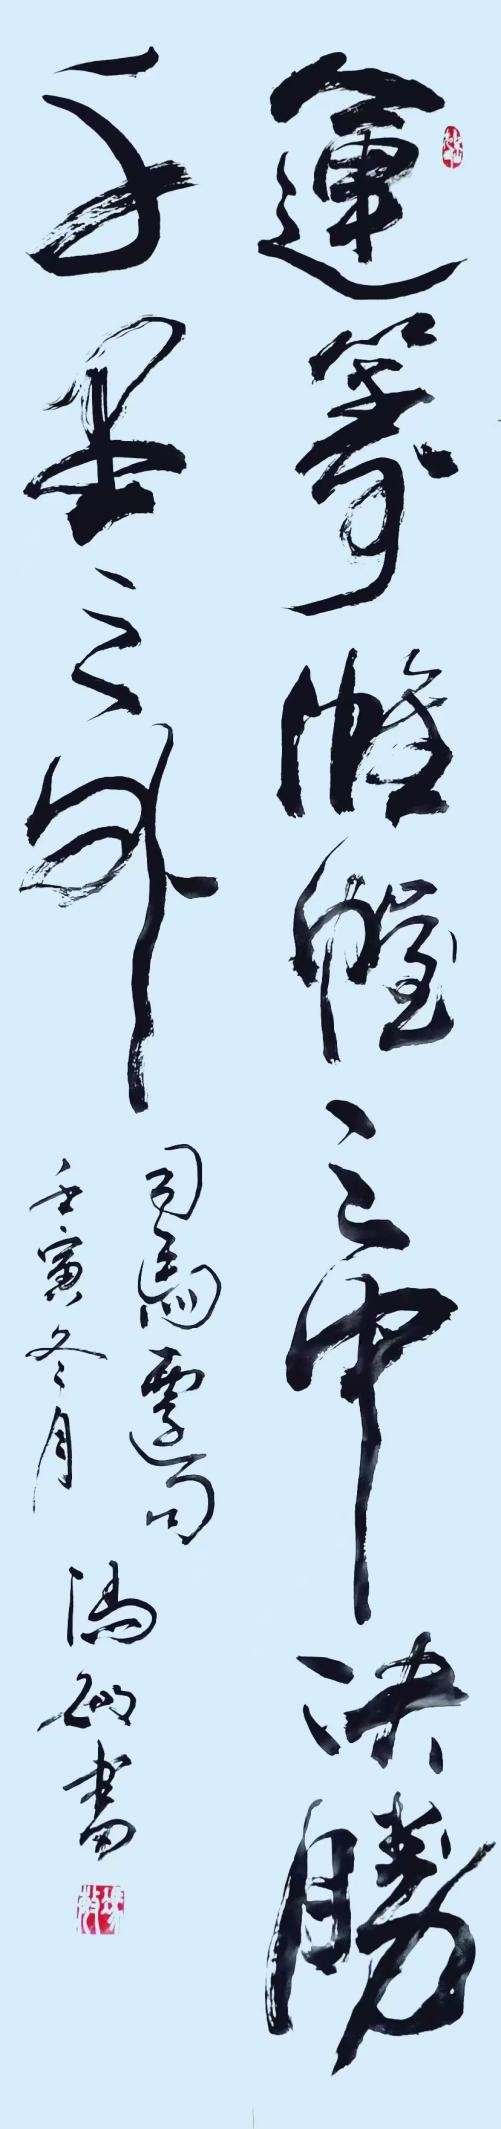 運籌帷幄之中決勝
千里之外
司馬遷句
壬寅冬月
馮
書